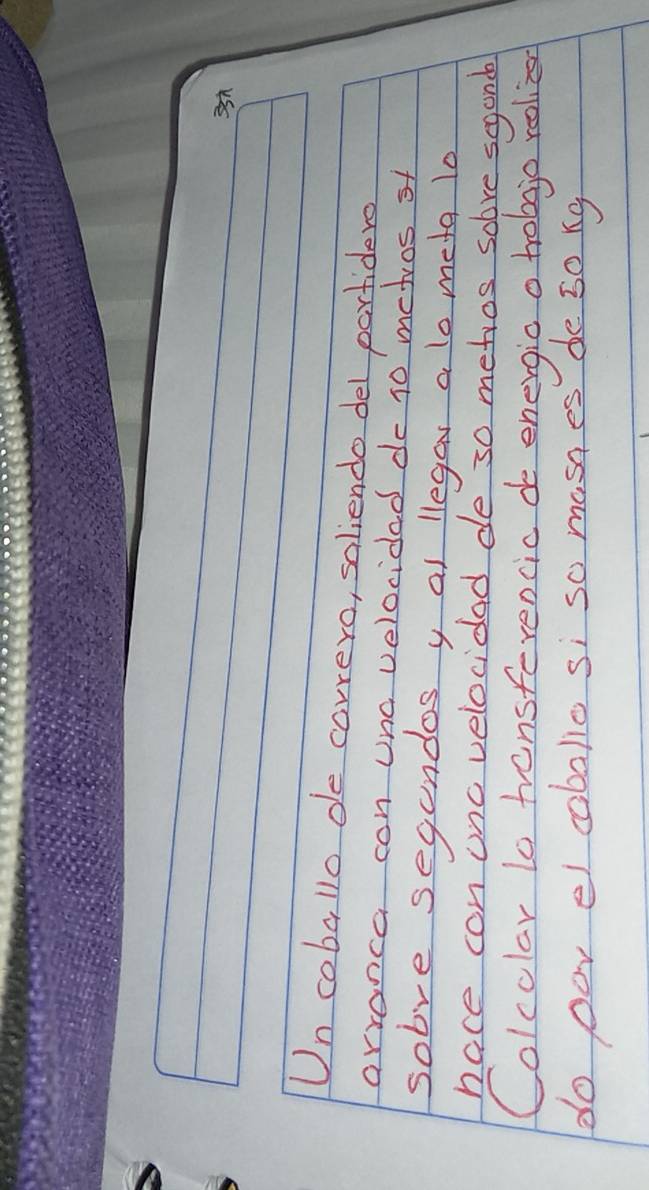 Un caballo de carrera, saliendo del partidero
arranca con una velocidad de 10 metros
sobre segundos y al llegar a la meta lo
hace con una velocidad de 30 metros sobre segundo
Calcular la transferencia de energia o trabajo realiza
do por el caballo si so masa es de 50 Kg